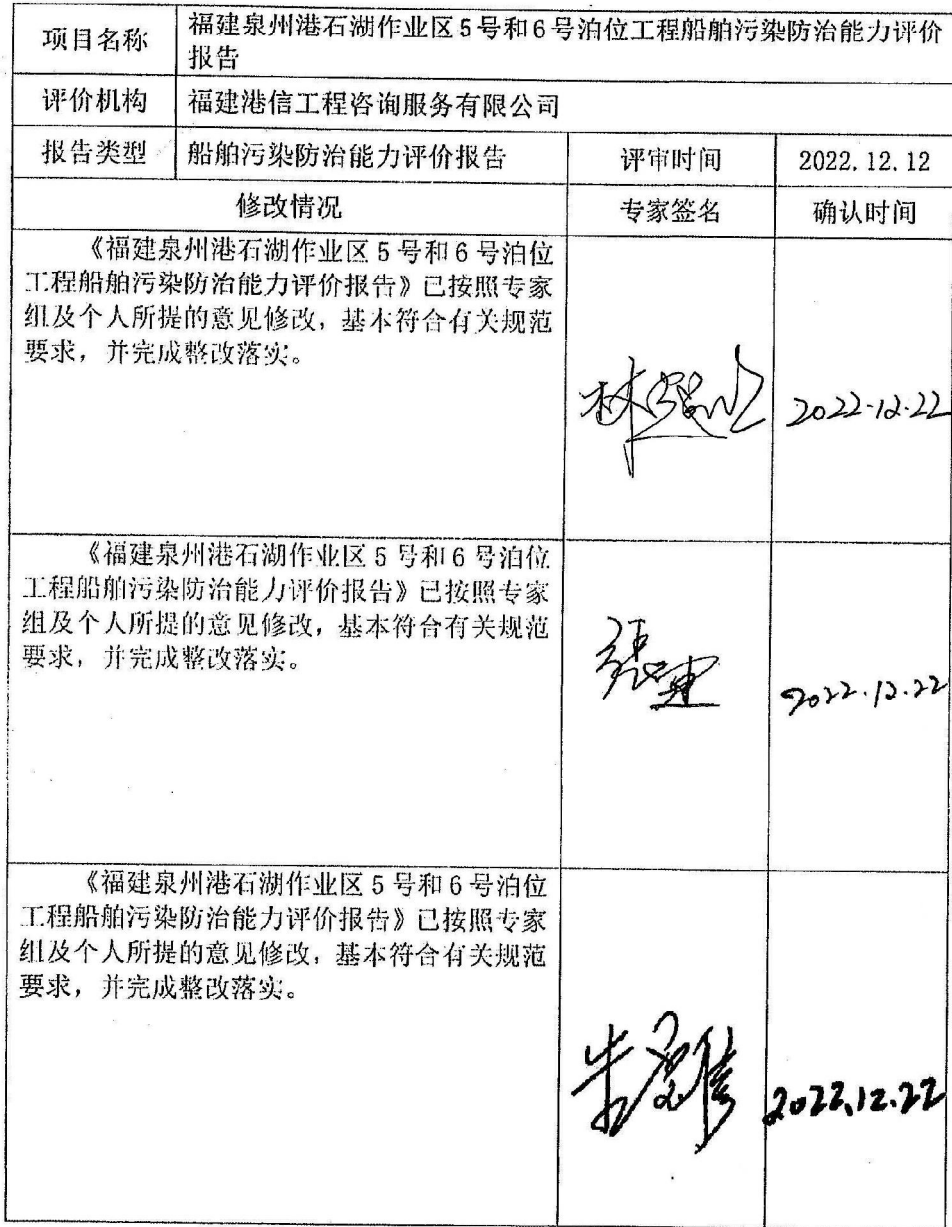 项目名称
福建泉州港石湖作业区5号和6号泊位工程船舶污染防治能力评价
报告
评价机构
福建港信工程咨询服务有限公司
报告类型
船舶污染防治能力评价报告
评审时间
2022.12.12
修改情况
专家签名
确认时间
《福建泉州港石湖作业区5号和6号泊位
工程船舶污染防治能力评价报告》已按照专家
组及个人所提的意见修改，基本符合有关规范
要求，并完成整改落实。
2022.12.22
《福建泉州港石湖作业区5号和6号泊位
工程船舶污染防治能力评价报告》已按照专家
组及个人所提的意见修改，基本符合有关规范
要求，并完成整改落实。
2022.12.22
《福建泉州港石湖作业区5号和6号泊位
工程船舶污染防治能力评价报告》已按照专家
组及个人所提的意见修改，基本符合有关规范
要求，并完成整改落实。
2022.12.22